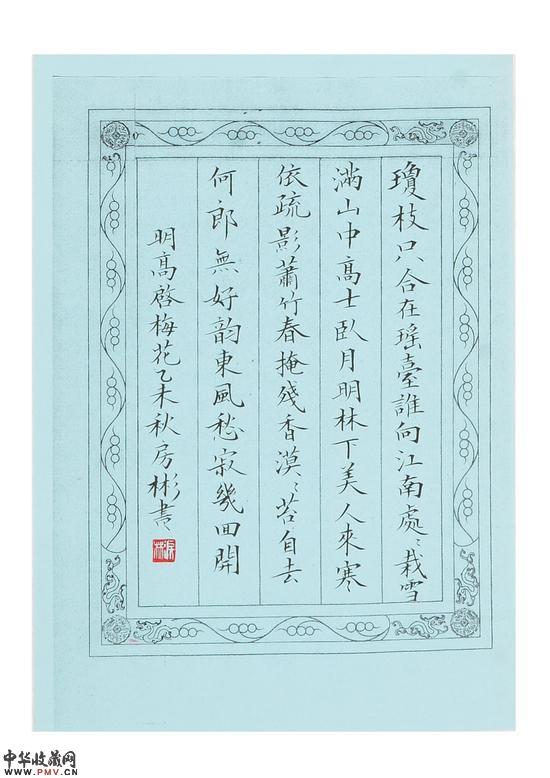 瓊枝只合在瑶臺誰向江南處〻栽雪
滿山中髙士臥月明林下美人來寒
依疏影蕭竹春掩殘香漠〻苔自去
何郎無好韵東風愁寂幾回開
明髙啓梅花乙未秋房彬書
中华收藏网
WWW.PMV.CN